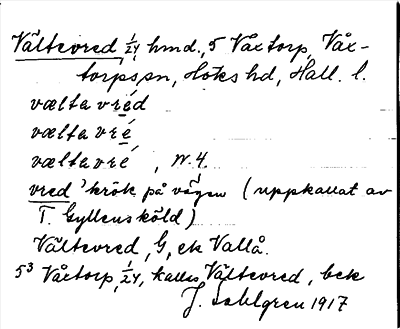 Vältevred, 1/24 hmd., 5 Våxtorp, Våx-
torps sn, Höks hd, Hall. l.
væltavréd
væltavré
væltavré, N. 4.
vred 'krök på vägen (uppkallat av
T. Gyllensköld)
Vältevred, G, ek Vallå.
5³ Våxtorp, 1/24, kallas Vältevred, bek
J. Sahlgren 1917